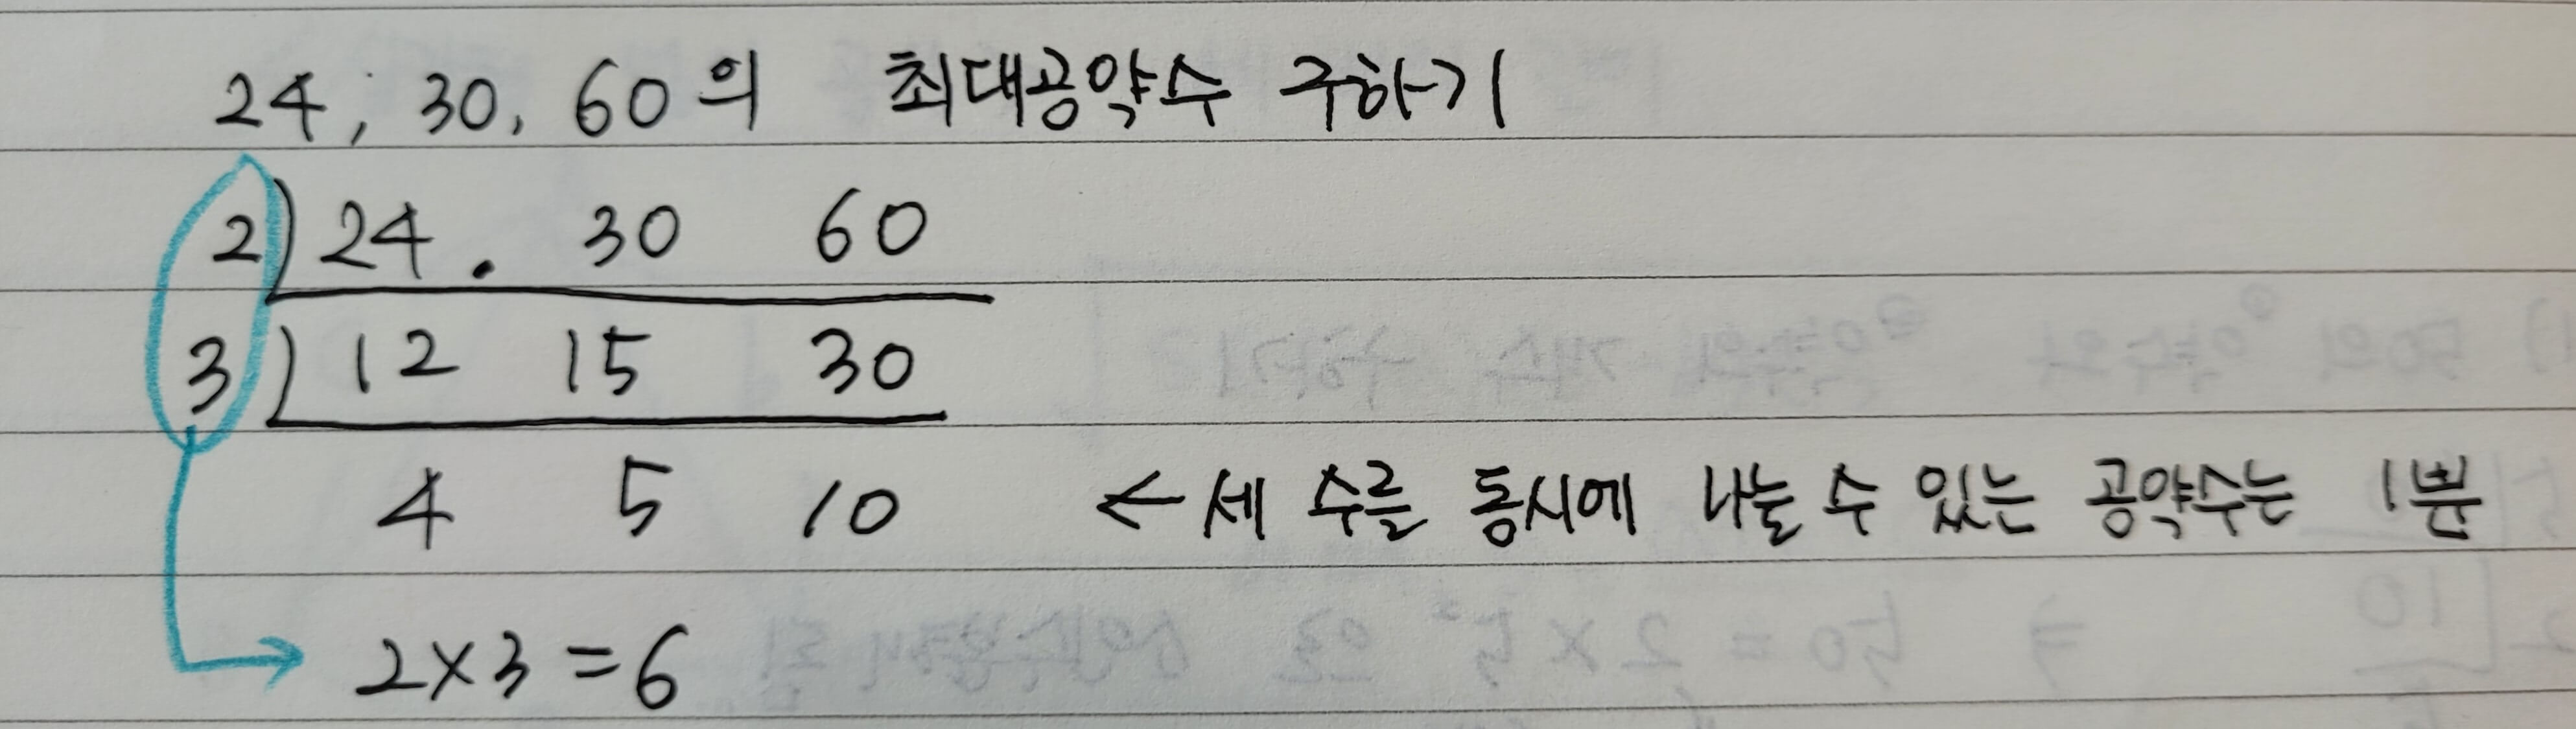 24, 30, 60의 최대공약수 구하기
2) 24. 30 60
3) 12 15 30
4 5 10 ← 세 수를 동시에 나눌 수 있는 공약수는 1뿐
2×3=6